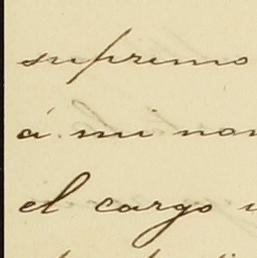 supremo
á mi nom
el cargo